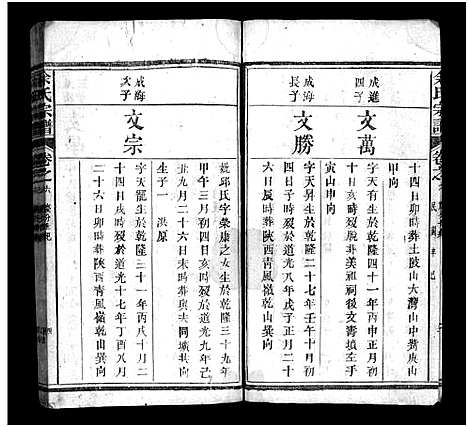 余氏宗譜
卷之
十四日卯時葬土陂山大灣山中共庚山
甲向
成進
四子
文萬
字天有生於乾隆四十一年丙申正月初
十日亥時歿葬美祖祠後文萬墳左坐
寅山申向
成海
長子
文勝
字天昇生於乾隆二十七年壬午十月
四日子時歿於道光八年戊子正月二十
八日卯時葬陝西青風嶺乾山巽向
成海
次子
文宗
字天龍生於乾隆三十一年丙戌十月二
十四日戌時歿於道光十七年丁酉八月
二十六日未時葬陝西青風嶺乾山巽向
妣邱氏字榮康之女生於乾隆三十九年
甲午三月初四日亥時歿於道光
九月二十六日未時葬與夫同城
生子一 洪原
余氏宗譜
卷之